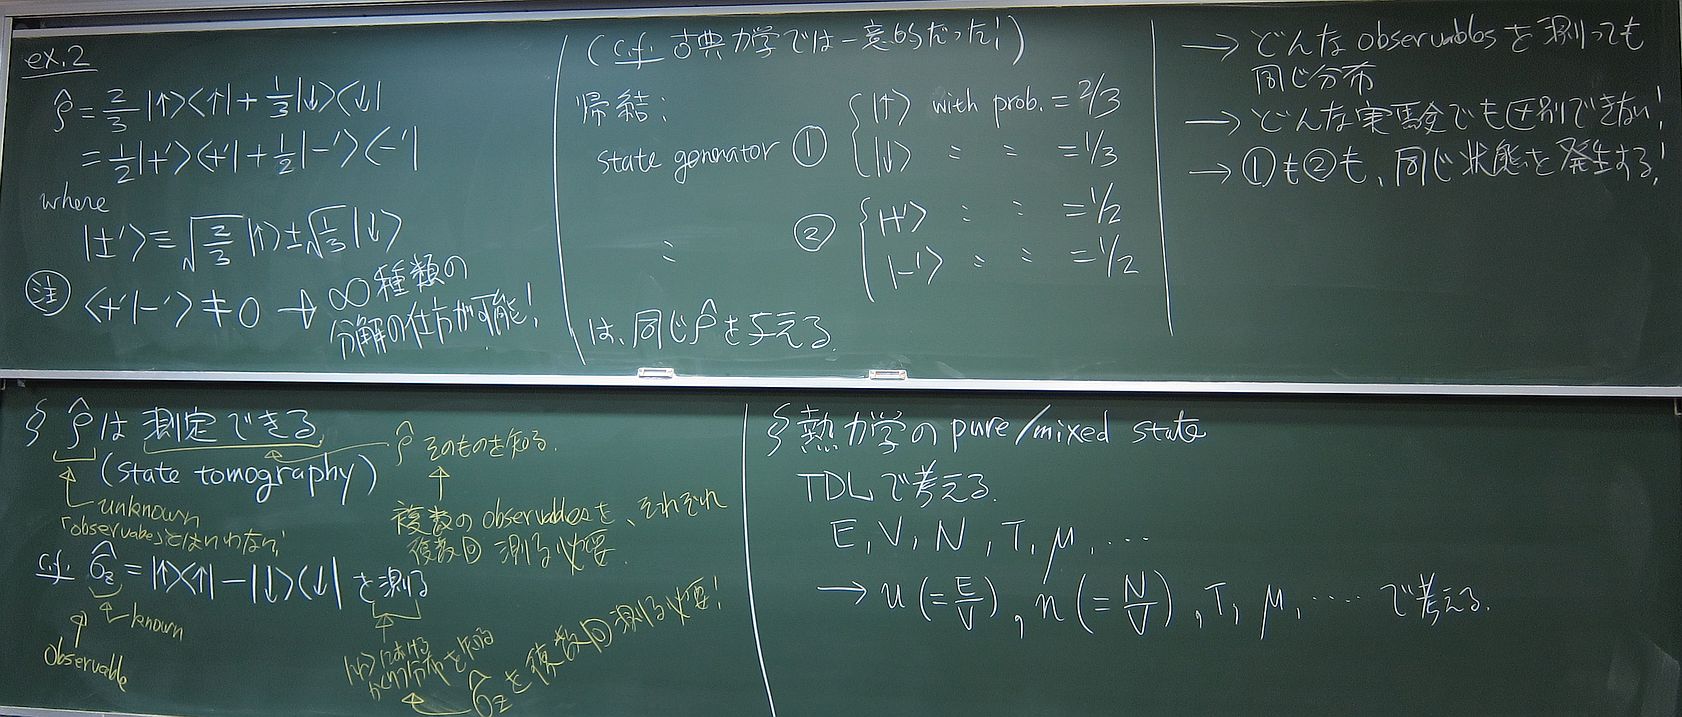 ex.2
ρ̂ = 2/3 |↑><↑| + 1/3 |↓><↓|
= 1/2 |+'><+'| + 1/2 |-'><-'|
where
|±'> ≡ √2/3 |↑> ± √1/3 |↓>
注 <+'|-'> ≠ 0 → ∞種類の
分解の仕方が可能!
(c.f. 古典力学では一意的だった!)
帰結:
state generator ① { |↑> with prob. = 2/3
|↓> 〃 〃 = 1/3
〃 ② { |+'> 〃 〃 = 1/2
|-'> 〃 〃 = 1/2
は、同じρ̂を与える.
→ どんなobservablesを測っても
同じ分布
→ どんな実験でも区別できない!
→ ①も②も、同じ状態を発生する!
§ ρ̂は測定できる
(state tomography)
ρ̂そのものを知る.
unknown
「observable」とはいわない!
複数のobservablesを、それぞれ
複数回 測る必要.
c.f. σ̂z = |↑><↑| - |↓><↓| を測る
known
observable
|ψ>における
σzの分布を知る
σ̂zを複数回測る必要!
§ 熱力学のpure/mixed state
TDLで考える.
E, V, N, T, μ, …
→ u (= E/V), n (= N/V), T, μ, ‥‥ で考える.